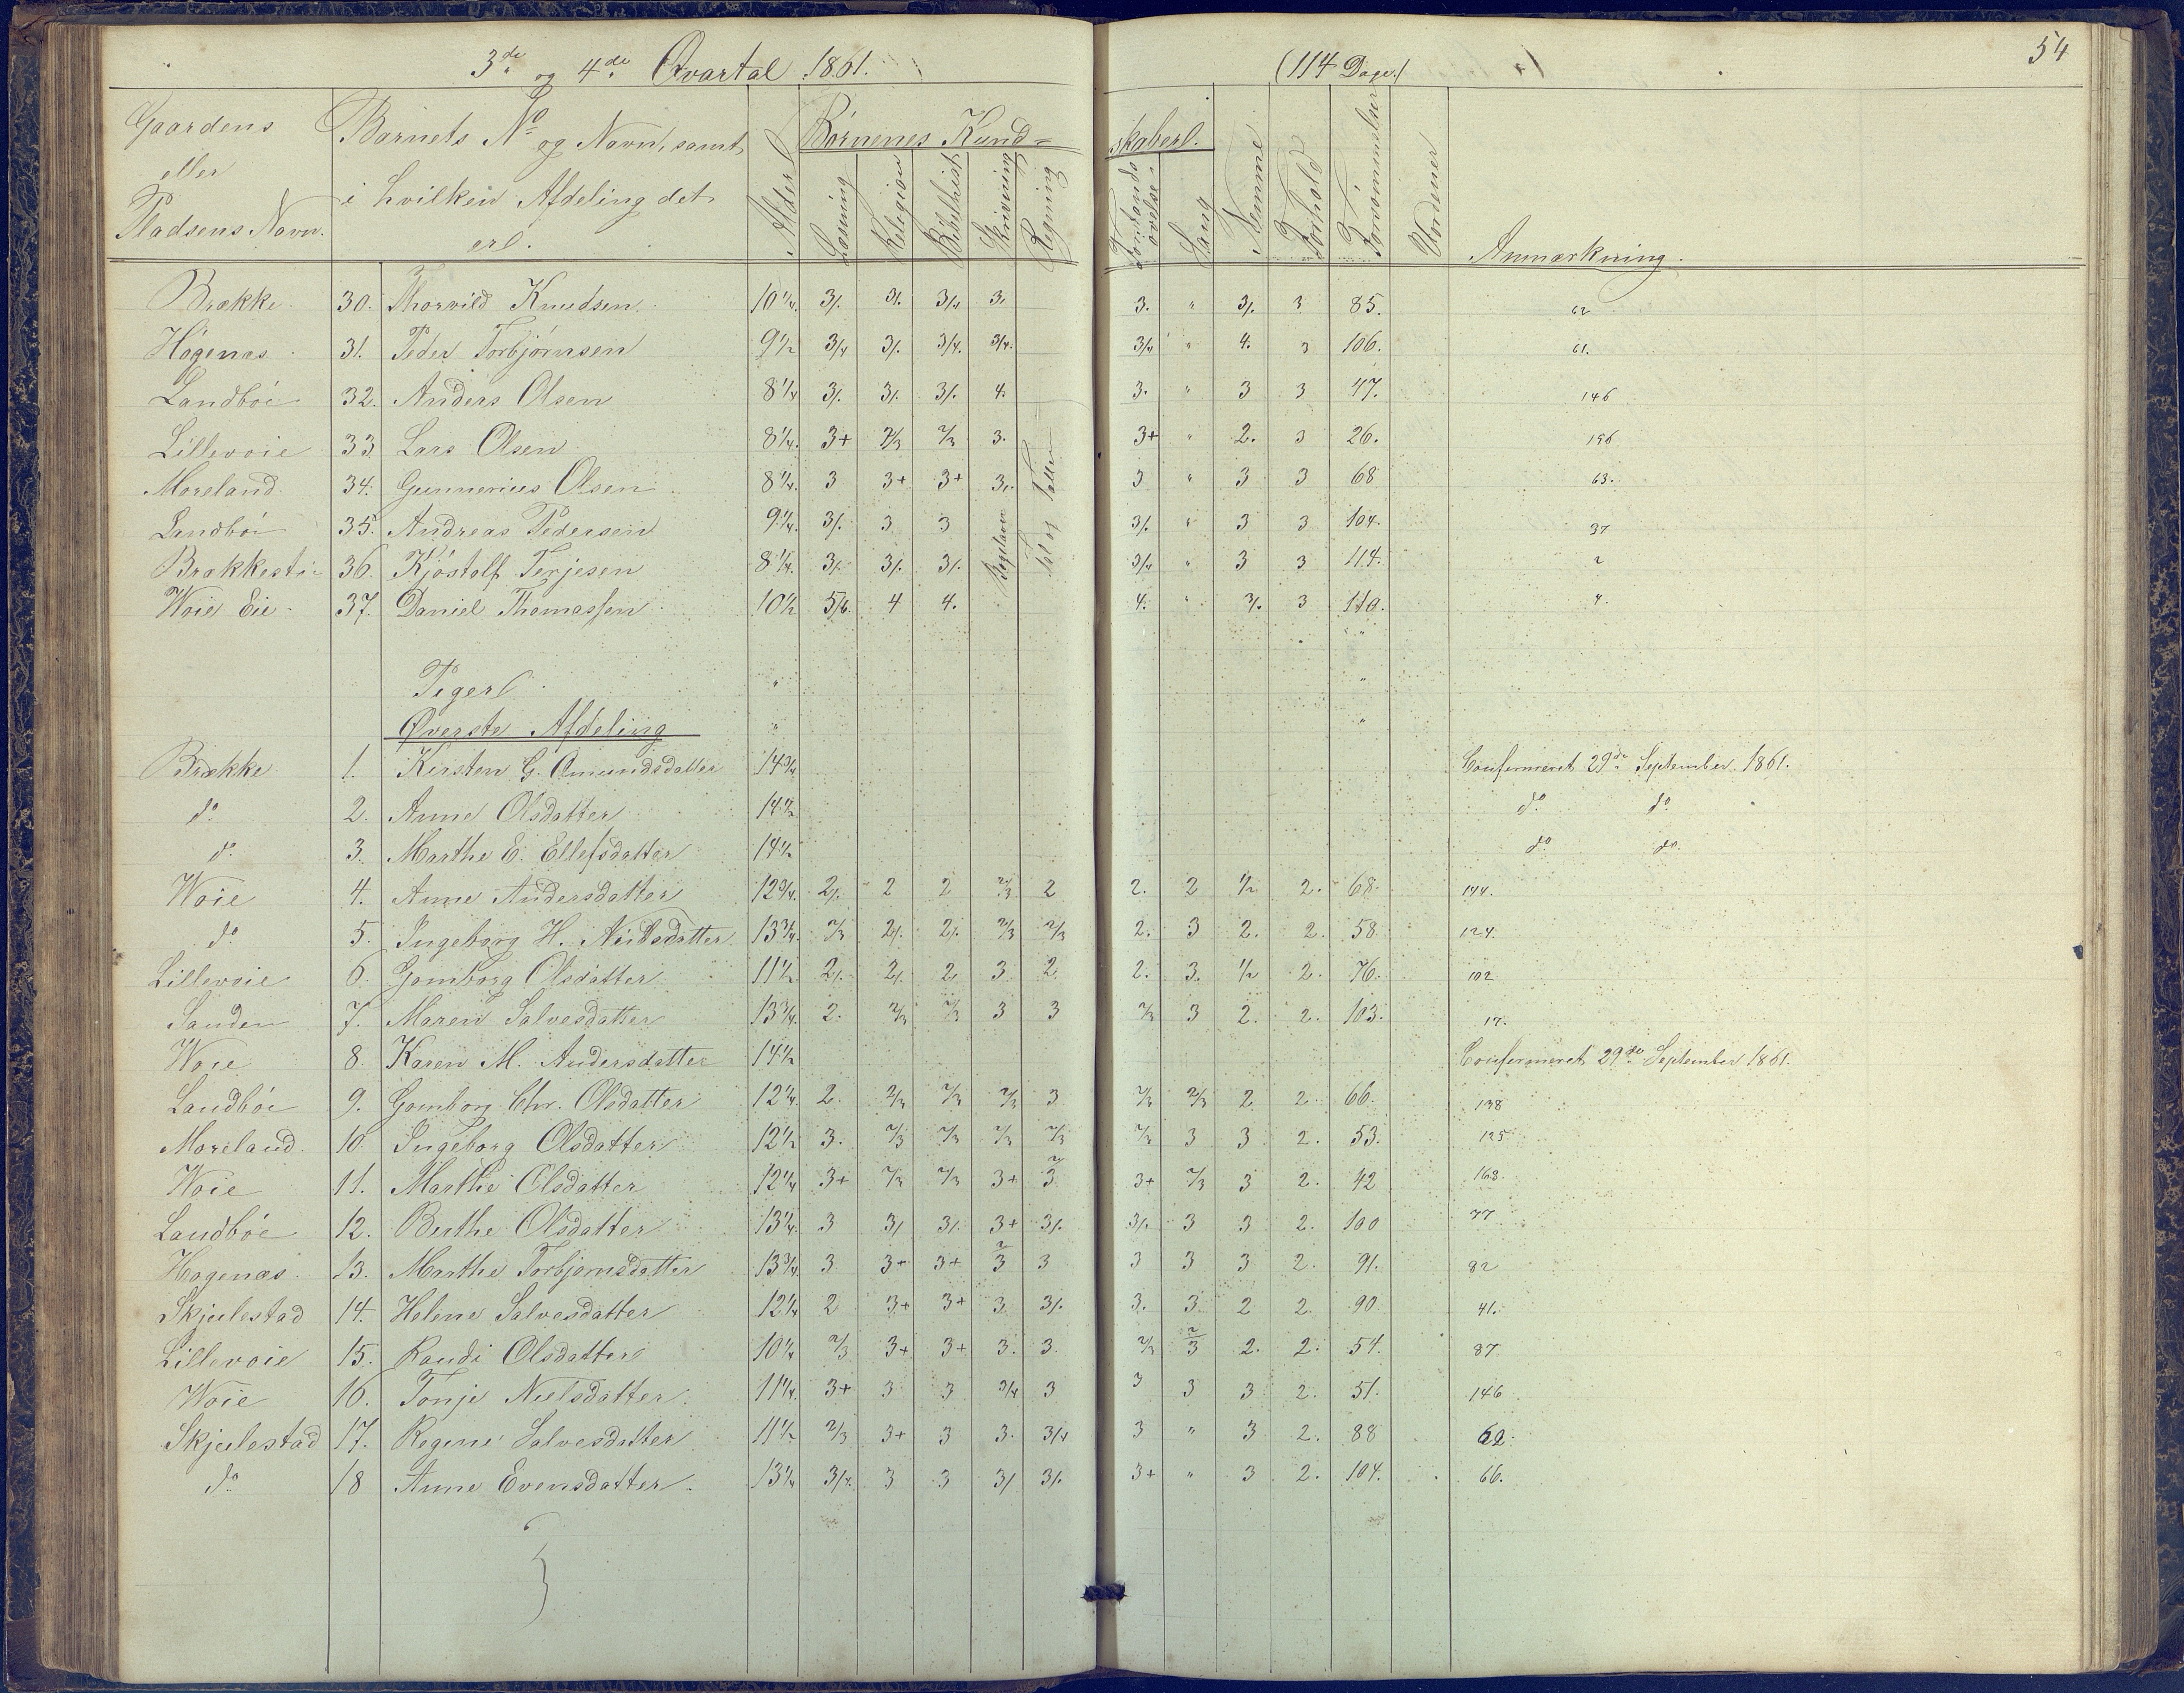 3de og 4de Qvartal 1861. (114 Dage.) 54
Gaardens eller Pladsens Navn. Barnets No og Navn, samt i hvilken Afdeling det er. Alder Børnenes Kund= skaber. Læsning Religion Bibelhist. Skrivning Regning Forstandsøvelse Sang Nemme Forhold Forsømmelser Anmærkning.
Brække 30. Thorvild Knudsen 10 1/4 3/. 3/. 3/4 3. 3. " 3/. 3 85. 62
Högenæs 31. Peder Torbjörnsen 9 1/2 3/4 3/. 3/4. 3/4. 3/4 " 4. 3 106. 61.
Landböi 32. Anders Olsen 8 1/4 3/. 3/. 3/. 4. 3. " 3 3 47. 146
Lillevoie 33 Lars Olsen 8 1/4. 3+ 2/3 2/3 3. 3+ " 2. 3 26. 156
Moreland 34. Gunnerius Olsen 8 1/4. 3 3+ 3+ 3. 3 " 3 3 68 63.
Landböi 35. Andreas Pedersen 9 1/4. 3/. 3 3 3/. " 3 3 104. 37
Brækkesti 36. Kjöstolf Terjesen 8 1/4. 3/. 3/. 3/. 3/4 " 3 3 114. 2
Woie Eie 37. Daniel Thomassen 10 1/2 5/6. 4 4. 4. " 3/. 3 110. 4.
Piger
Øverste Afdeling
Brække 1. Kirsten G. Omundsdatter 14 3/4 Confirmeret 29de September 1861.
do 2. Anne Olsdatter 14 1/2 do do
do 3. Marthe E. Ellefsdatter 14 1/2 do do
Woie 4. Anne Andersdatter 12 3/4. 2/. 2 2 2/3 2 2. 2 1/2 2. 68. 144.
do 5. Ingeborg H. Nielsdatter 13 3/4. 2/3 2/. 2/. 2/3 2/3 2. 3 2. 2. 58 124.
Lillevoie 6. Gomborg Olsdatter 11 1/2 2/. 2/. 2/. 3 2 2. 3. 1/2 2. 76. 102
Sanden 7. Maren Salvesdatter 13 3/4. 2. 2/3 2/3 3 3 2/3 3 2. 2. 103. 17.
Woie 8 Karen M. Andersdatter 14 1/2 Confirmeret 29de September 1861.
Landböi 9. Gomborg Chr. Olsdatter 12 1/4. 2. 2/3 2/3 2/3 3 2/3 2/3 2 2. 66. 138
Moreland 10 Ingeborg Olsdatter 12 1/2 3. 2/3 2/3 2/3 2/3 2/3 3 3 2. 53. 125
Woie 11. Marthe Olsdatter 12 1/4 3+ 2/3 2/3 3+ 2/3 3+ 2/3 3 2. 42 168.
Landböe 12. Berthe Olsdatter 13 1/4. 3 3/. 3/. 3+ 3/. 3/. 3 3 2. 100 77
Hagenæs 13. Marthe Torbjornsdatter 13 3/4. 3 3+ 3+ 2/3 3 3 3 3 2. 91. 82
Skjulestad 14. Helene Salvesdatter 12 1/4 2 3+ 3+ 3 3/. 3. 3 2 2. 90 41.
Lillevoie 15. Randi Olsdatter 10 1/4 2/3 3+ 3+ 3. 3. 2/3 2/3 2. 2. 54. 87
Woie 16. Tonje Nielsdatter 11 1/4. 3+ 3 3 3/4 3 3 3 3 2. 51. 146
Skjulestad 17. Regine Salvesdatter 11 1/2 2/3 3+ 3 3. 3/4 3 " 3 2. 88 62.
do 18 Anne Evensdatter 13 1/4 3/4. 3 3 3/. 3/. 3+ " 3 2. 104. 66.